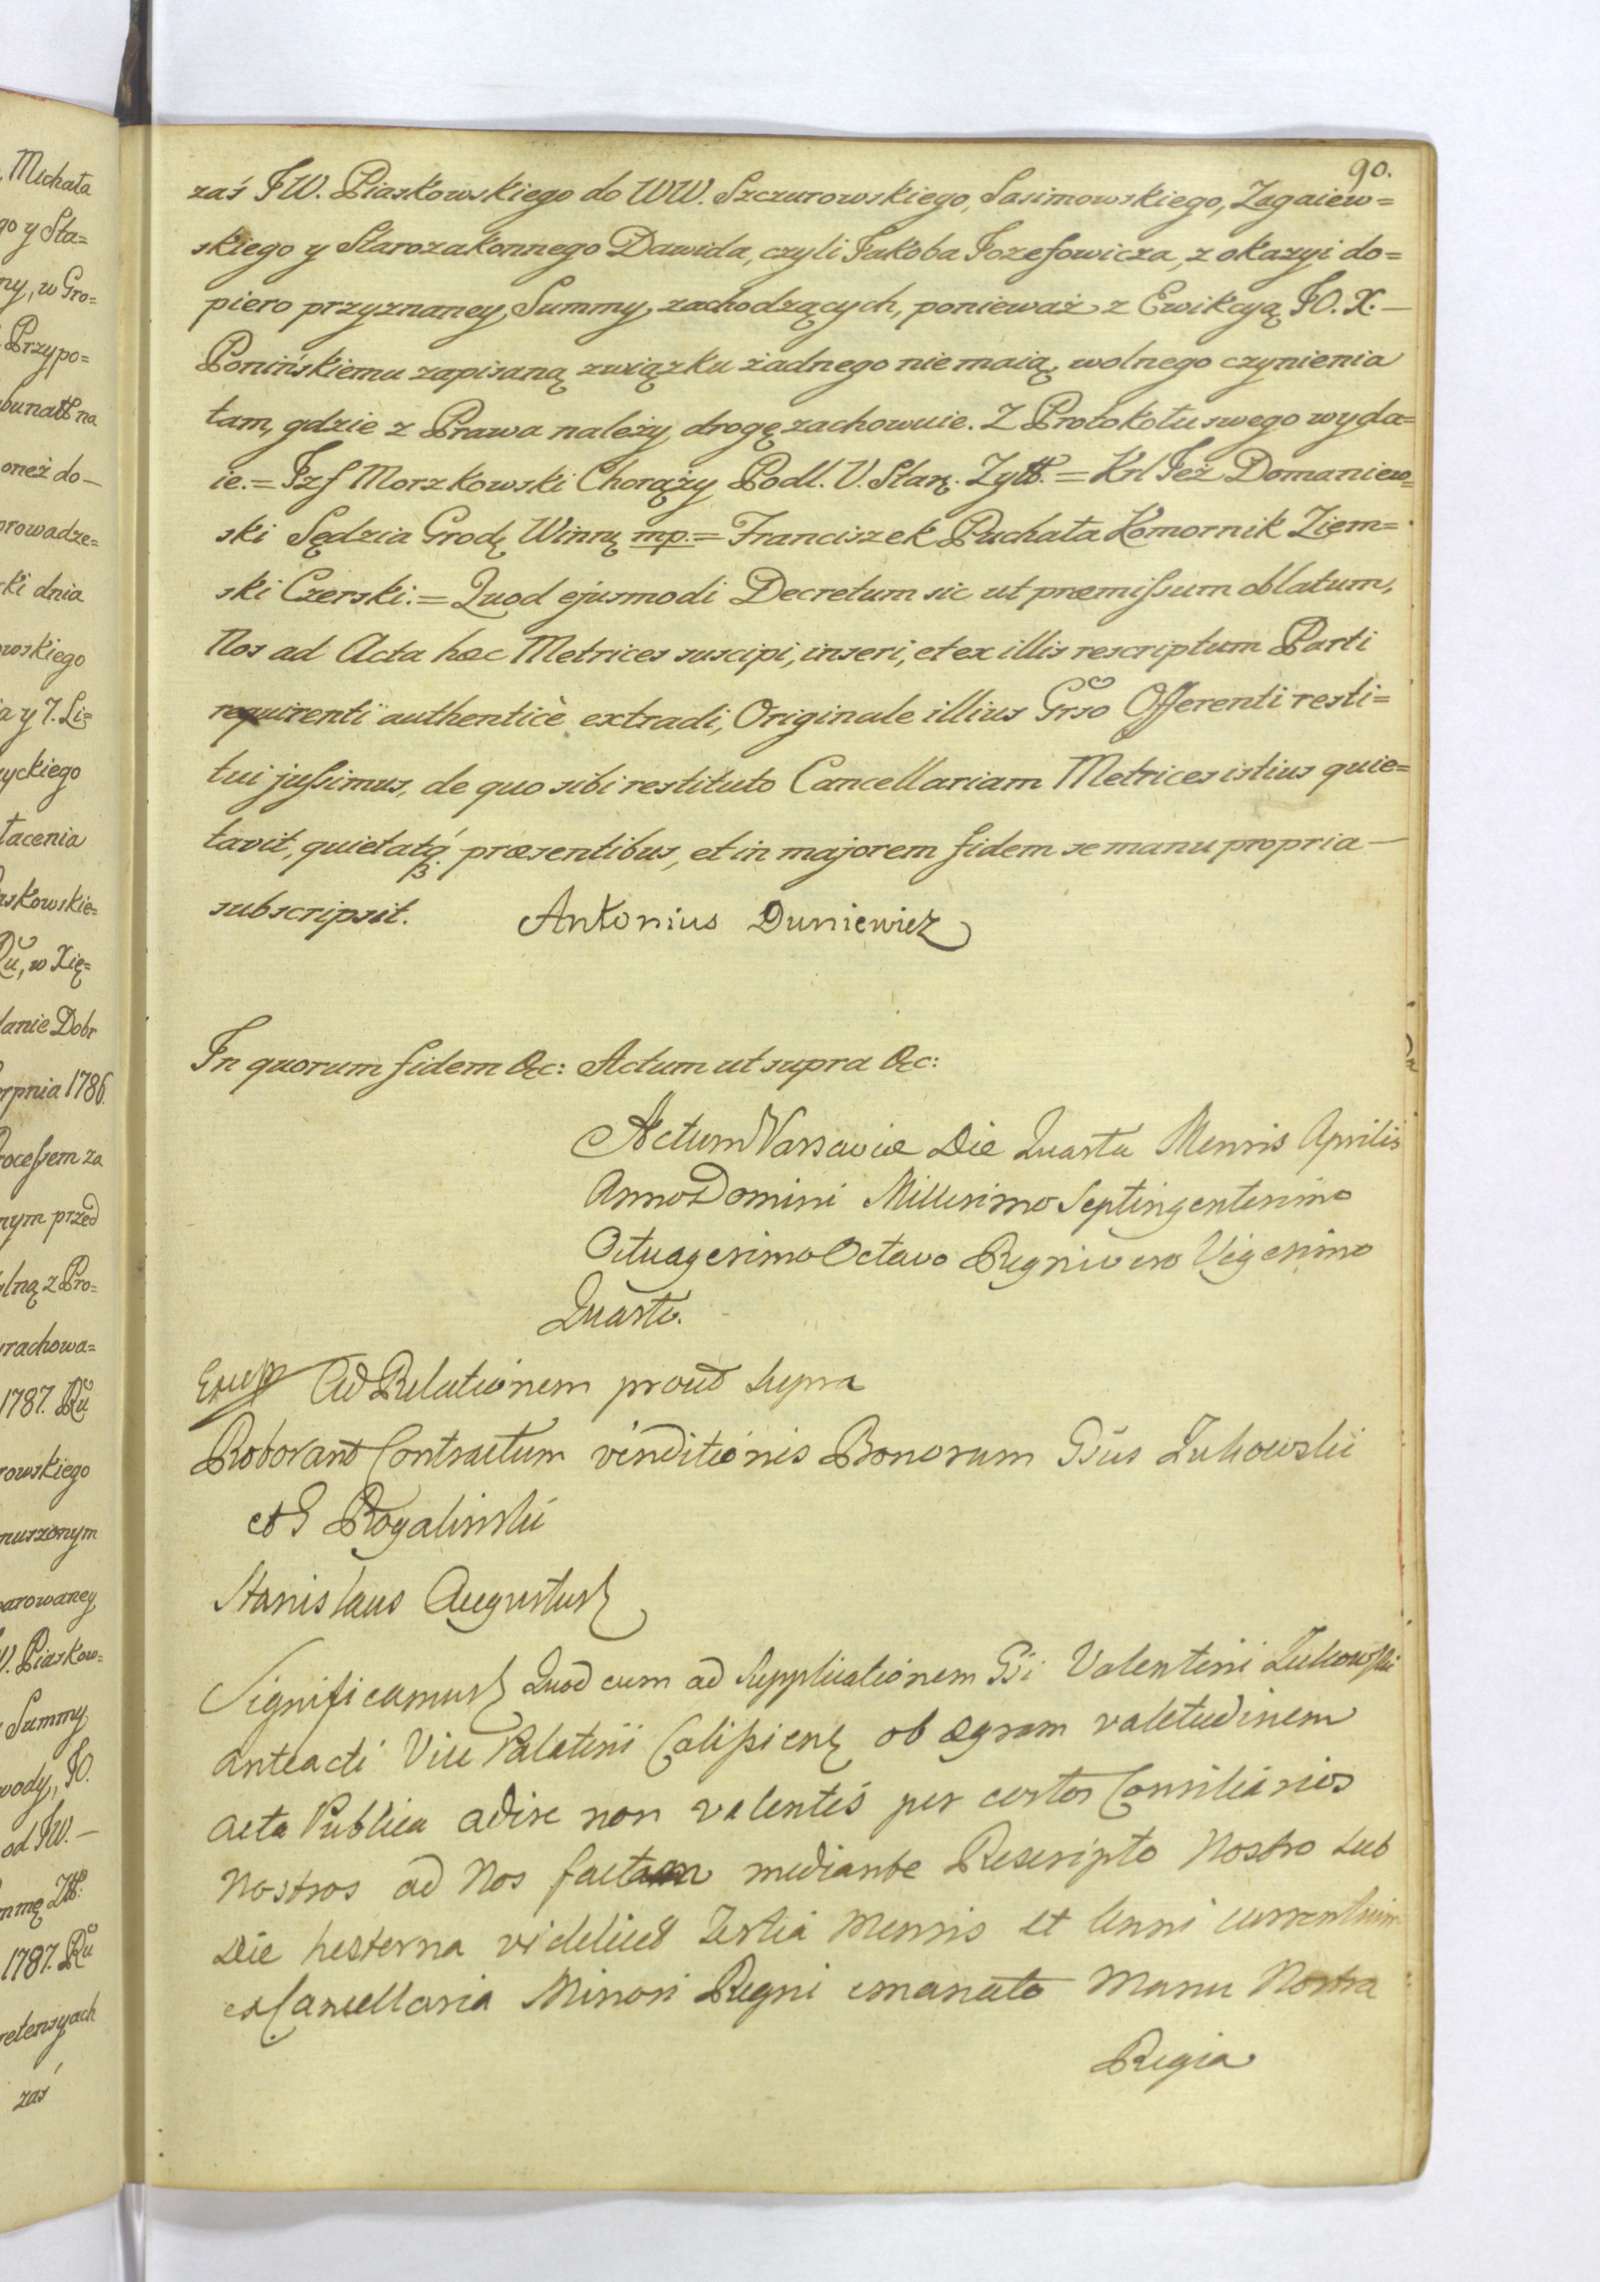 Michała
go y Sta=
ny, w Gro=
Przypo=
bunałł na
oneż do—
prowadze=
ki dnia
owskiego
a y J. Li=
yckiego
łacenia
askowskie=
Ru, w Xię=
danie Dobr
erpnia 1786.
rocessem za
nym przed
lną z Pro=
rachowa=
1787. Ru
rowskiego
nuszonym
parowaney
W. Piaskow=
Summy
wody, JO.
od JW.—
mmę Złł:
1787. Ru
retensyach
zaś
90.
zaś JW. Piaskowskiego do WW. Szczurowskiego, Sasimowskiego, Zagaiew=
skiego y Starozakonnego Dawida, czyli Jakoba Jozefowicza, z okazyi do=
piero przyznaney Summy, zachodzących, ponieważ z Ewikcyą JO. X.—
Ponińskiemu zapisaną związku żadnego nie maią, wolnego czynienia
tam, gdzie z Prawa należy, drogę zachowuie. Z Protokołu swego wyda=
ie.= Jzf Morzkowski Chorąży Podl. V. Starę. Zyłł.= Krl Jeż Domaniew=
ski Sędzia Grodę Winnę mp.= Franciszek Puchała Komornik Ziem=
ski Czerski.= Quod ejusmodi Decretum sic ut præmissum oblatum,
Nos ad Acta hæc Metrices suscipi, inseri, et ex illis rescriptum Parti
requirenti authenticè extradi, Originale illius Grso Offerenti resti=
tui jussimus, de quo sibi restituto Cancellariam Metrices istius quie=
tavit, quietatq præsentibus, et in majorem fidem se manu propria—
subscripsit. Antonius Duniewicz
In quorum fidem &c: Actum ut supra &c:
Actum Varsaviæ Die Quarta Mensis Aprilis
Anno Domini Millesimo Septingentesimo
Octuagesimo Octavo Regni vero Vigesimo
Quarto.
Ad Relationem prout supra
Roborant Contractum venditionis Bonorum Gsus Zukowski
et G Rogalinski
Stanislaus Augustus
Significamus Quod cum ad Supplicationem Gsi Valentini Zukowski
anteacti Vice Palatini Calissiens ob ægram valetudinem
Acta Publica adire non valentis per certos Consiliarios
Nostros ad Nos factam mediante Rescripto Nostro sub
Die hesterna videlicet Tertia Mensis et Anni currentium
ex Cancellaria Minori Regni emanato Manu Nostra
Regia